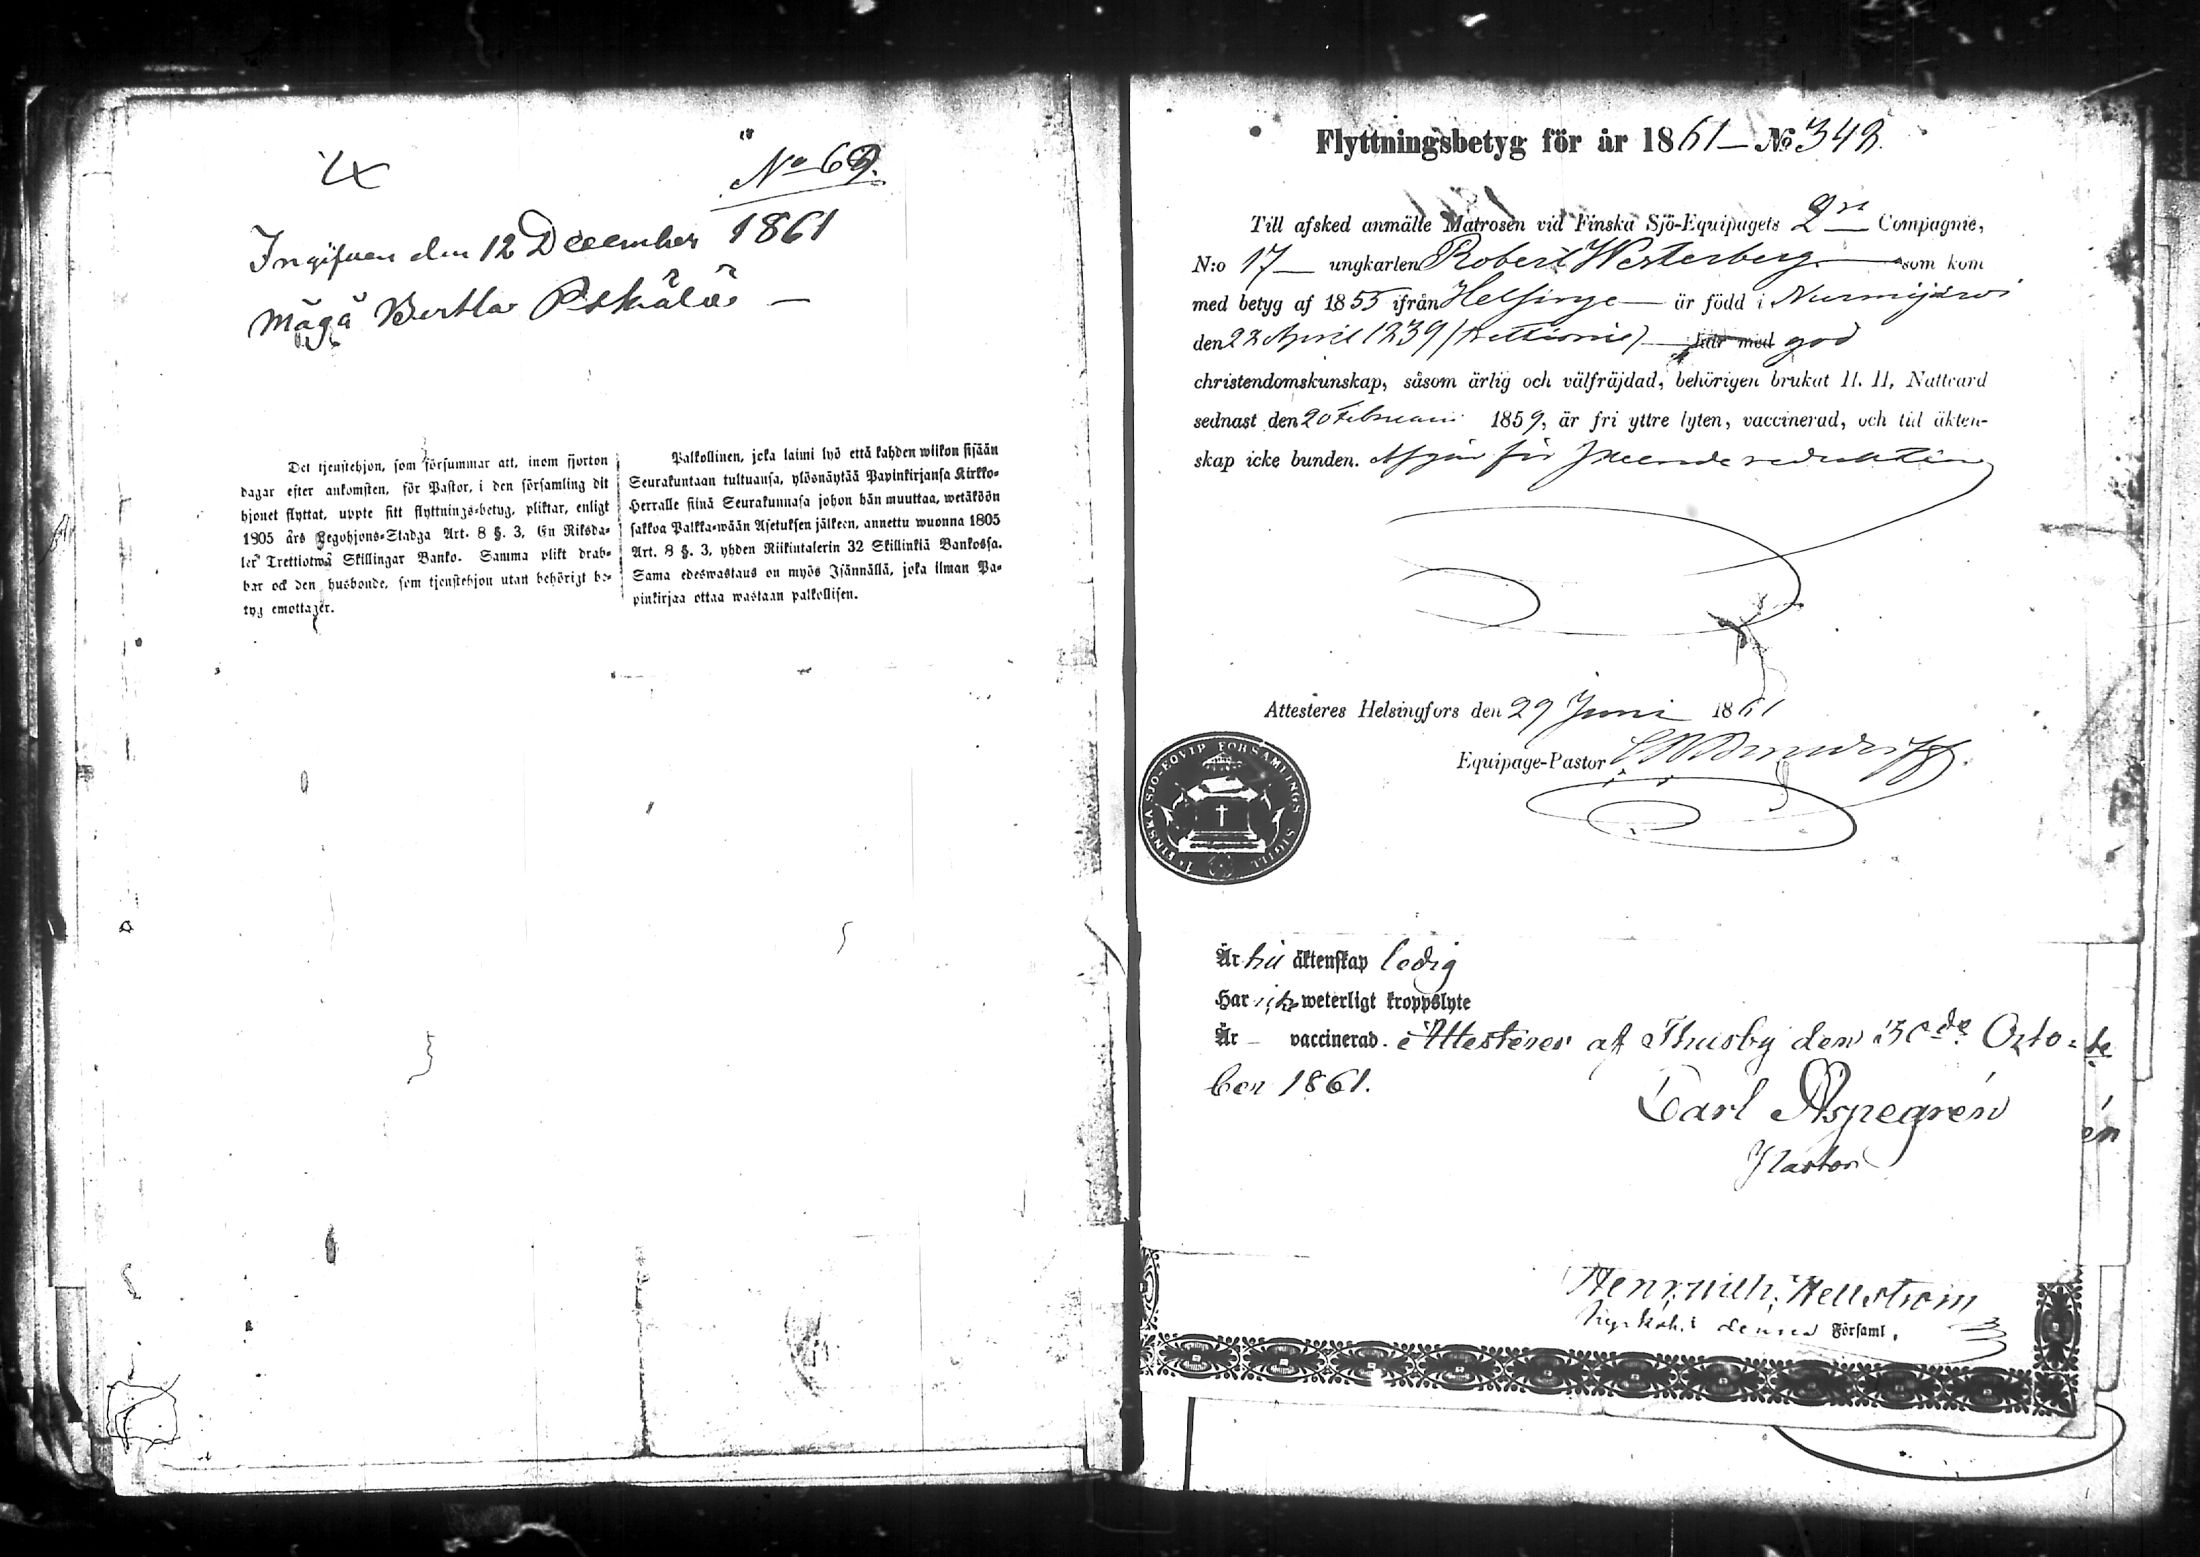 No 69.
Ingifven den 12 December 1861
Mågå Bertla Pekälä —
Det tjenstehjon, som försummar att, inom fjorton
dagar efter ankomsten, för Pastor, i den församling dit
hjonet flyttat, uppte sitt flyttnings-betyg, pliktar, enligt
1805 års Legohjons-Stadga Art. 8 §. 3, En Riksda-
ler Trettiotwå Skillingar Banko. Samma plikt drab-
bar ock den husbonde, som tjenstehjon utan behörigt be-
tyg emottager.
Palkollinen, joka laimi lyö että kahden wiikon sisään
Seurakuntaan tultuansa, ylösnäytää Papinkirjansa Kirkko-
Herralle siinä Seurakunnasa johon hän muuttaa, wetäköön
sakkoa Palkka-wään Asetuksen jälkeen, annettu wuonna 1805
Art. 8 §. 3, yhden Riikintalerin 32 Skillinkiä Bankossa.
Sama edeswastaus on myös Isännällä, joka ilman Pa-
pinkirjaa ottaa wastaan palkollisen.
Flyttningsbetyg för år 1861 — No 348.
Till afsked anmälte Matrosen vid Finska Sjö-Equipagets 2ra Compagnie,
N:o 17 — ungkarlen Robert Westerberg — som kom
med betyg af 1855 ifrån Helsinge — är född i Nurmijärvi
den 22 April 1839 (trettionie) — har med god
christendomskunskap, såsom ärlig och välfräjdad, behörigen brukat H. H. Nattvard
sednast den 20 Februari 1859, är fri yttre lyten, vaccinerad, och till äkten-
skap icke bunden. Afgår för skeende reduktion
Attesteres Helsingfors den 29 Juni 1861
Equipage-Pastor
1a FINSKA SJÖ-EQVIP FÖRSAMLINGS SIGILL
Är till äktenskap ledig
Har icke weterligt kroppslyte
Är — vaccinerad. Attesterer af Thusby den 30de Octo-
ber 1861.
Carl Aspegrén
Pastor
Henr. Wilh. Hellström
Kyrkoh. i denna Församl.